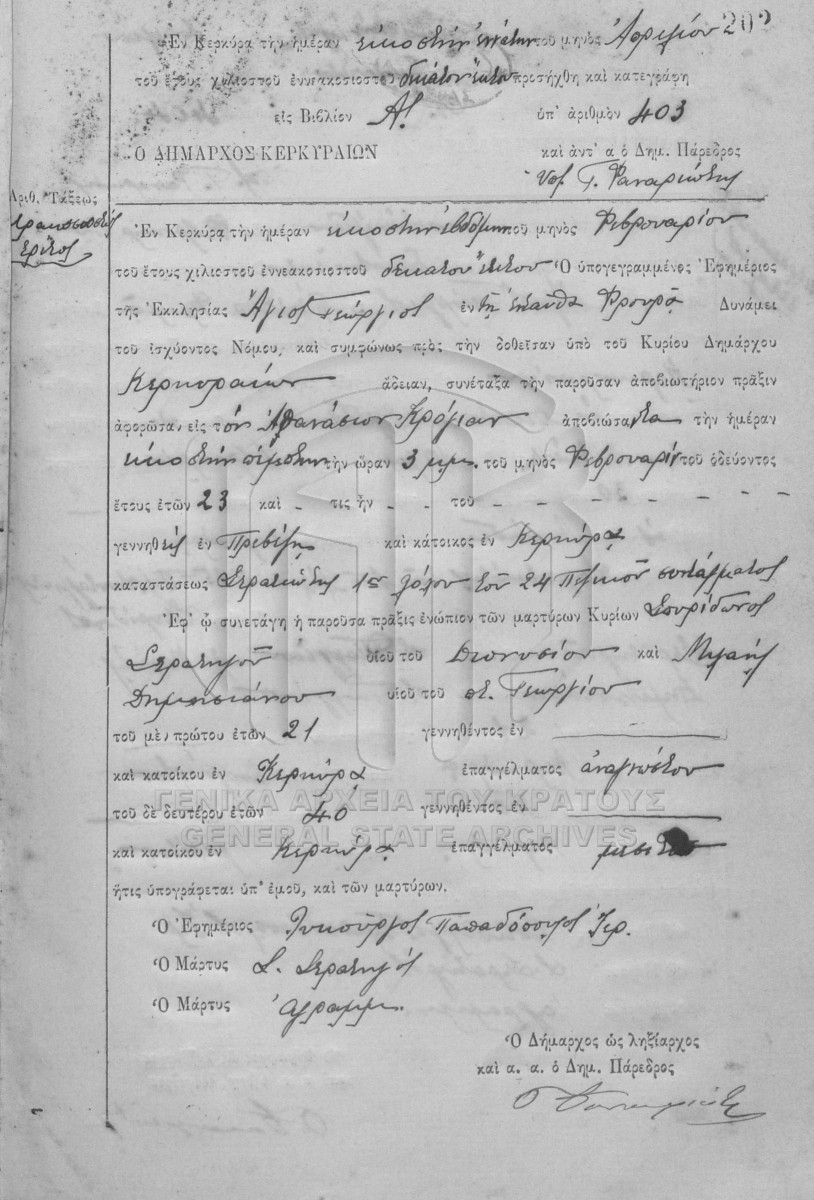 202
Ἐν Κερκύρᾳ τὴν ἡμέραν εἰκοστὴν ἐννάτην τοῦ μηνὸς Ἀπριλίου
τοῦ ἔτους χιλιοστοῦ ἐννεακοσιοστοῦ δεκάτου ἕκτου προσήχθη καὶ κατεγράφη
εἰς Βιβλίον Α! ὑπ' ἀριθμὸν 403
Ὁ ΔΗΜΑΡΧΟΣ ΚΕΡΚΥΡΑΙΩΝ καὶ ἀντ' α ὁ Δημ. Πάρεδρος
Γ. Φαναριώτης
Ἀριθ. Τάξεως
τρακοσιοστὸς
τρίτος
Ἐν Κερκύρᾳ τὴν ἡμέραν εἰκοστὴν ἑβδόμην τοῦ μηνὸς Φεβρουαρίου
τοῦ ἔτους χιλιοστοῦ ἐννεακοσιοστοῦ δεκάτου ἕκτου Ὁ ὑπογεγραμμένος Ἐφημέριος
τῆς Ἐκκλησίας Ἅγιος Γεώργιος ἐν τῷ ἐνταῦθα Φρουρίῳ Δυνάμει
τοῦ ἰσχύοντος Νόμου, καὶ συμφώνως πρὸς τὴν δοθεῖσαν ὑπὸ τοῦ Κυρίου Δημάρχου
Κερκυραίων ἄδειαν, συνέταξα τὴν παροῦσαν ἀποβιωτήριον πρᾶξιν
ἀφορῶσαν εἰς τὸν Ἀθανάσιον ἀποβιώσαντα τὴν ἡμέραν
εἰκοστὴν πέμπτην τὴν ὥραν 3 μ.μ. τοῦ μηνὸς Φεβρουαρίου τοῦ ὁδεύοντος
ἔτους ἐτῶν 23 καὶ - τις ἦν - - τοῦ - - - - - - - -
γεννηθεὶς ἐν Πρεβέζῃ καὶ κάτοικος ἐν Κερκύρᾳ
καταστάσεως Στρατιώτης 1ου λόχου τοῦ 24 Πεζικοῦ συντάγματος
Ἐφ' ᾧ συνετάγη ἡ παροῦσα πρᾶξις ἐνώπιον τῶν μαρτύρων Κυρίων Σπυρίδωνος
Στρατηγοῦ υἱοῦ τοῦ Διονυσίου καὶ Μιχαὴλ
υἱοῦ τοῦ Γεωργίου
τοῦ μὲν πρώτου ἐτῶν 21 γεννηθέντος ἐν
καὶ κατοίκου ἐν Κερκύρᾳ ἐπαγγέλματος ἀναγνώστου
τοῦ δὲ δευτέρου ἐτῶν 40 γεννηθέντος ἐν
καὶ κατοίκου ἐν Κερκύρᾳ ἐπαγγέλματος
ἥτις ὑπογράφεται ὑπ' ἐμοῦ, καὶ τῶν μαρτύρων.
Ὁ Ἐφημέριος Λυκοῦργος Παπαδόπουλος Ἱερ.
Ὁ Μάρτυς Σ. Στρατηγός
Ὁ Μάρτυς ἀγράμμ.
Ὁ Δήμαρχος ὡς ληξίαρχος
καὶ α. α. ὁ Δημ. Πάρεδρος
ΓΕΝΙΚΑ ΑΡΧΕΙΑ ΤΟΥ ΚΡΑΤΟΥΣ
GENERAL STATE ARCHIVES